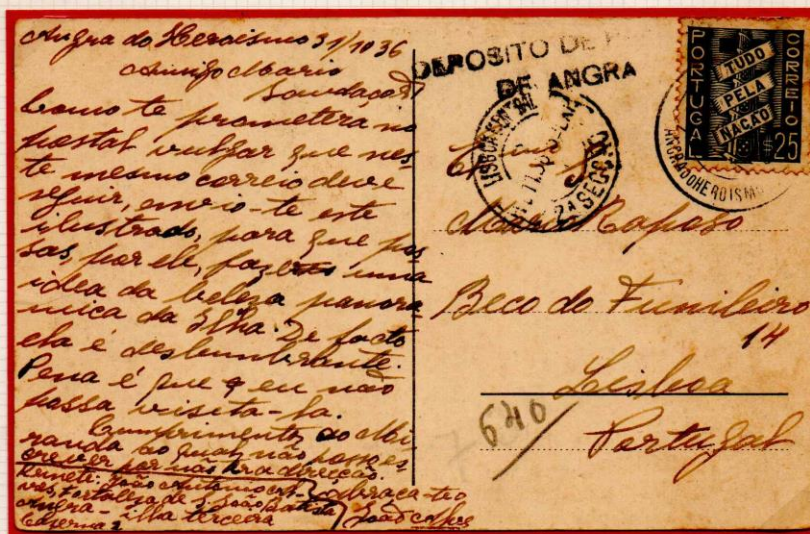 Angra do Heroismo 31/10 36
Amigo Mario
Saudações
Como te prometera no
postal vulgar que nes-
te mesmo correio deve
seguir, envio-te este
ilustrado, para que pos
sas, por ele, fazeres uma
idea da beleza panora
mica da Ilha. De facto
ela é deslumbrante.
Pena é que eu não
possa visita-la.
Cumprimentos ao Mi
randa ao qual não posso es
crever por não ter a direcção.
Remete: João Antonio
Fortaleza de S. João Batista
Angra - Ilha terceira
Caserna 2
abraça-te o
João
DEPOSITO DE
DE ANGRA
LISBOA
2ª SECÇÃO
PORTUGAL
CORREIO
TUDO
PELA
NAÇÃO
$25
ANGRA DO HEROISMO
Mario Raposo
Beco do Funileiro
14
Lisboa
Portugal
640